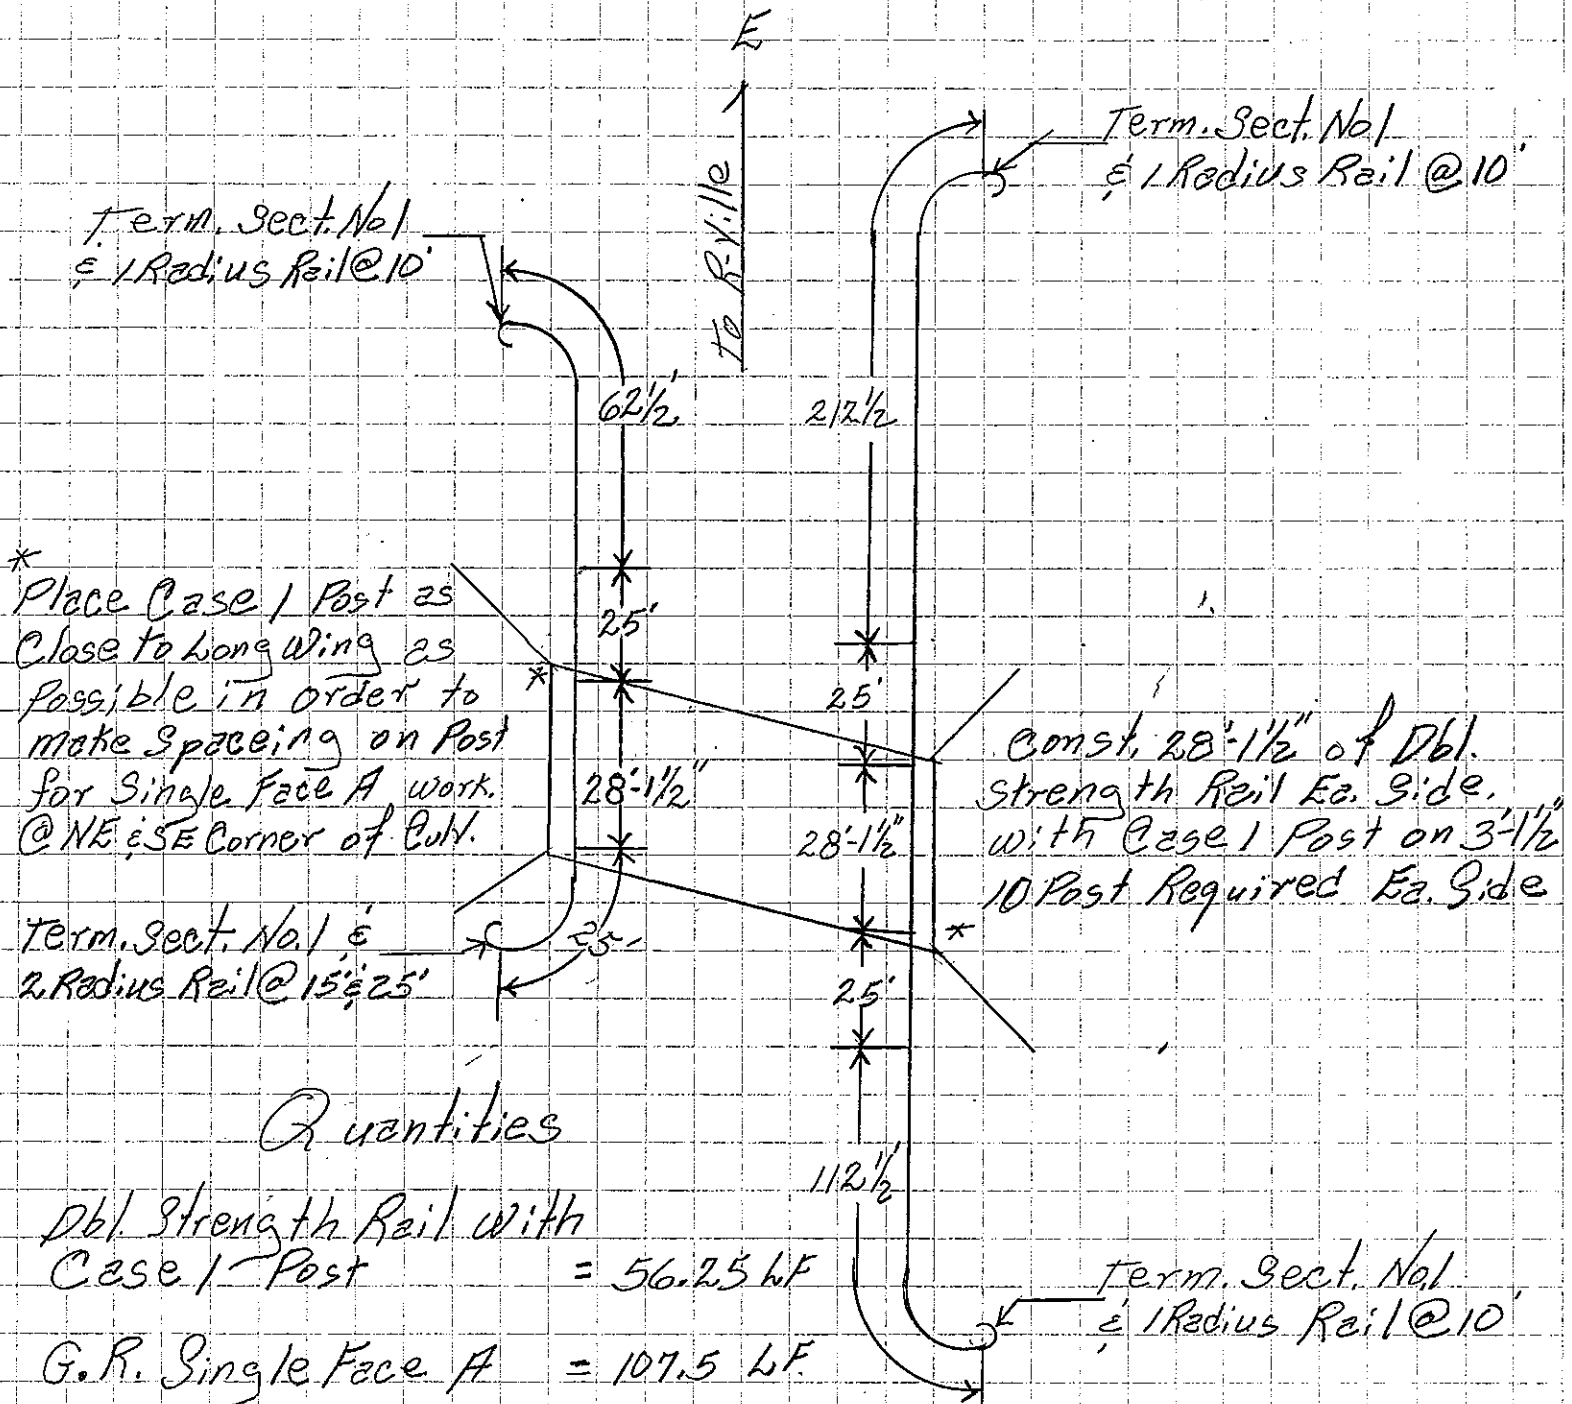 E
to R-ville
Term. Sect. No 1
& 1 Radius Rail @ 10'
Term. Sect. No 1
& 1 Radius Rail @ 10'
62½'
212½'
*
Place Case 1 Post as
Close to Long Wing as
Possible in order to
make Spaceing on Post
for Single Face A work.
@ NE & SE Corner of Culv.
25'
25'
*
28'-1½"
28'-1½"
Const. 28'-1½" of Dbl.
Strength Rail Ea. Side.
with Case 1 Post on 3'-1½"
10 Post Required Ea. Side
*
Term. Sect. No. 1 &
2 Radius Rail @ 15' & 25'
25
25'
112½'
Quantities
Dbl. Strength Rail with
Case 1 Post = 56.25 LF
G.R. Single Face A = 107.5 LF.
Term. Sect. No. 1
& 1 Radius Rail @ 10'